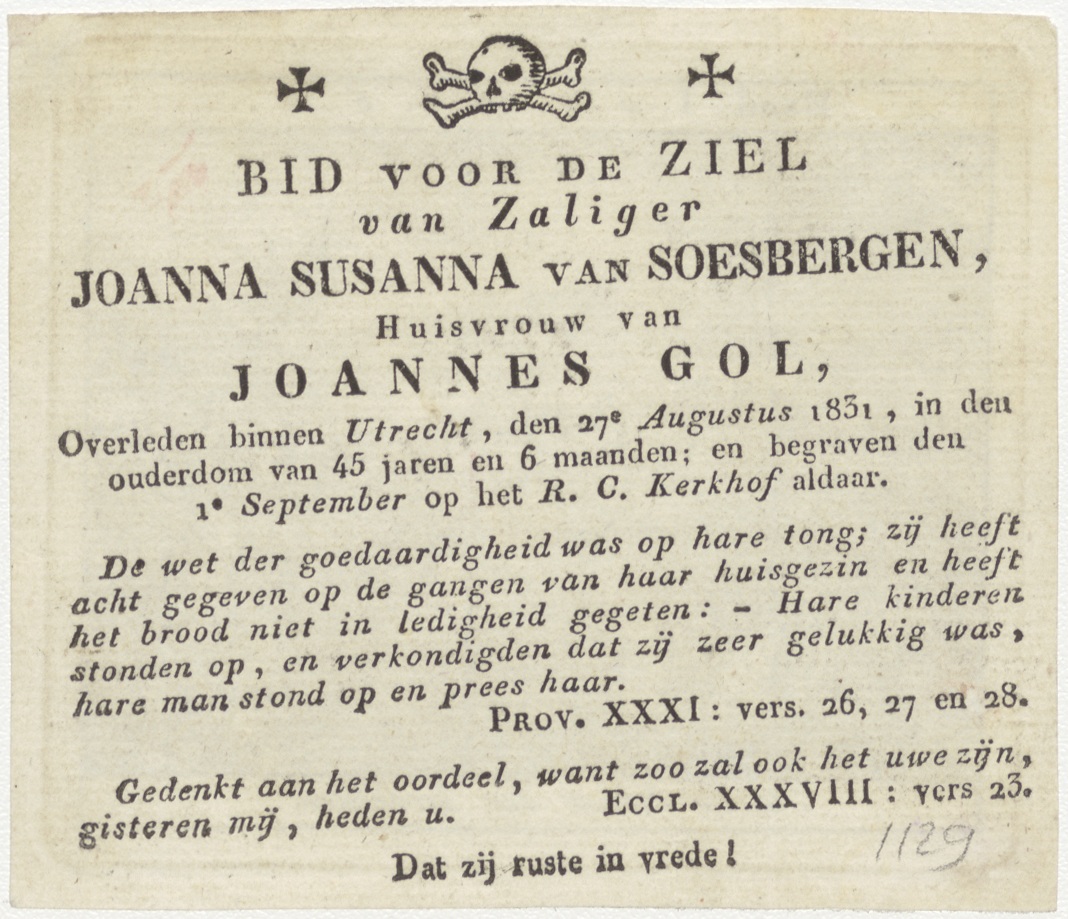 BID VOOR DE ZIEL
van Zaliger
JOANNA SUSANNA VAN SOESBERGEN,
Huisvrouw van
JOANNES GOL,
Overleden binnen Utrecht, den 27e Augustus 1831, in den
ouderdom van 45 jaren en 6 maanden; en begraven den
1e September op het R. C. Kerkhof aldaar.
De wet der goedaardigheid was op hare tong; zij heeft
acht gegeven op de gangen van haar huisgezin en heeft
het brood niet in ledigheid gegeten: – Hare kinderen
stonden op, en verkondigden dat zij zeer gelukkig was,
hare man stond op en prees haar.
PROV. XXXI: vers. 26, 27 en 28.
Gedenkt aan het oordeel, want zoo zal ook het uwe zijn,
gisteren mij, heden u. ECCL. XXXVIII: vers 23.
Dat zij ruste in vrede!
1129